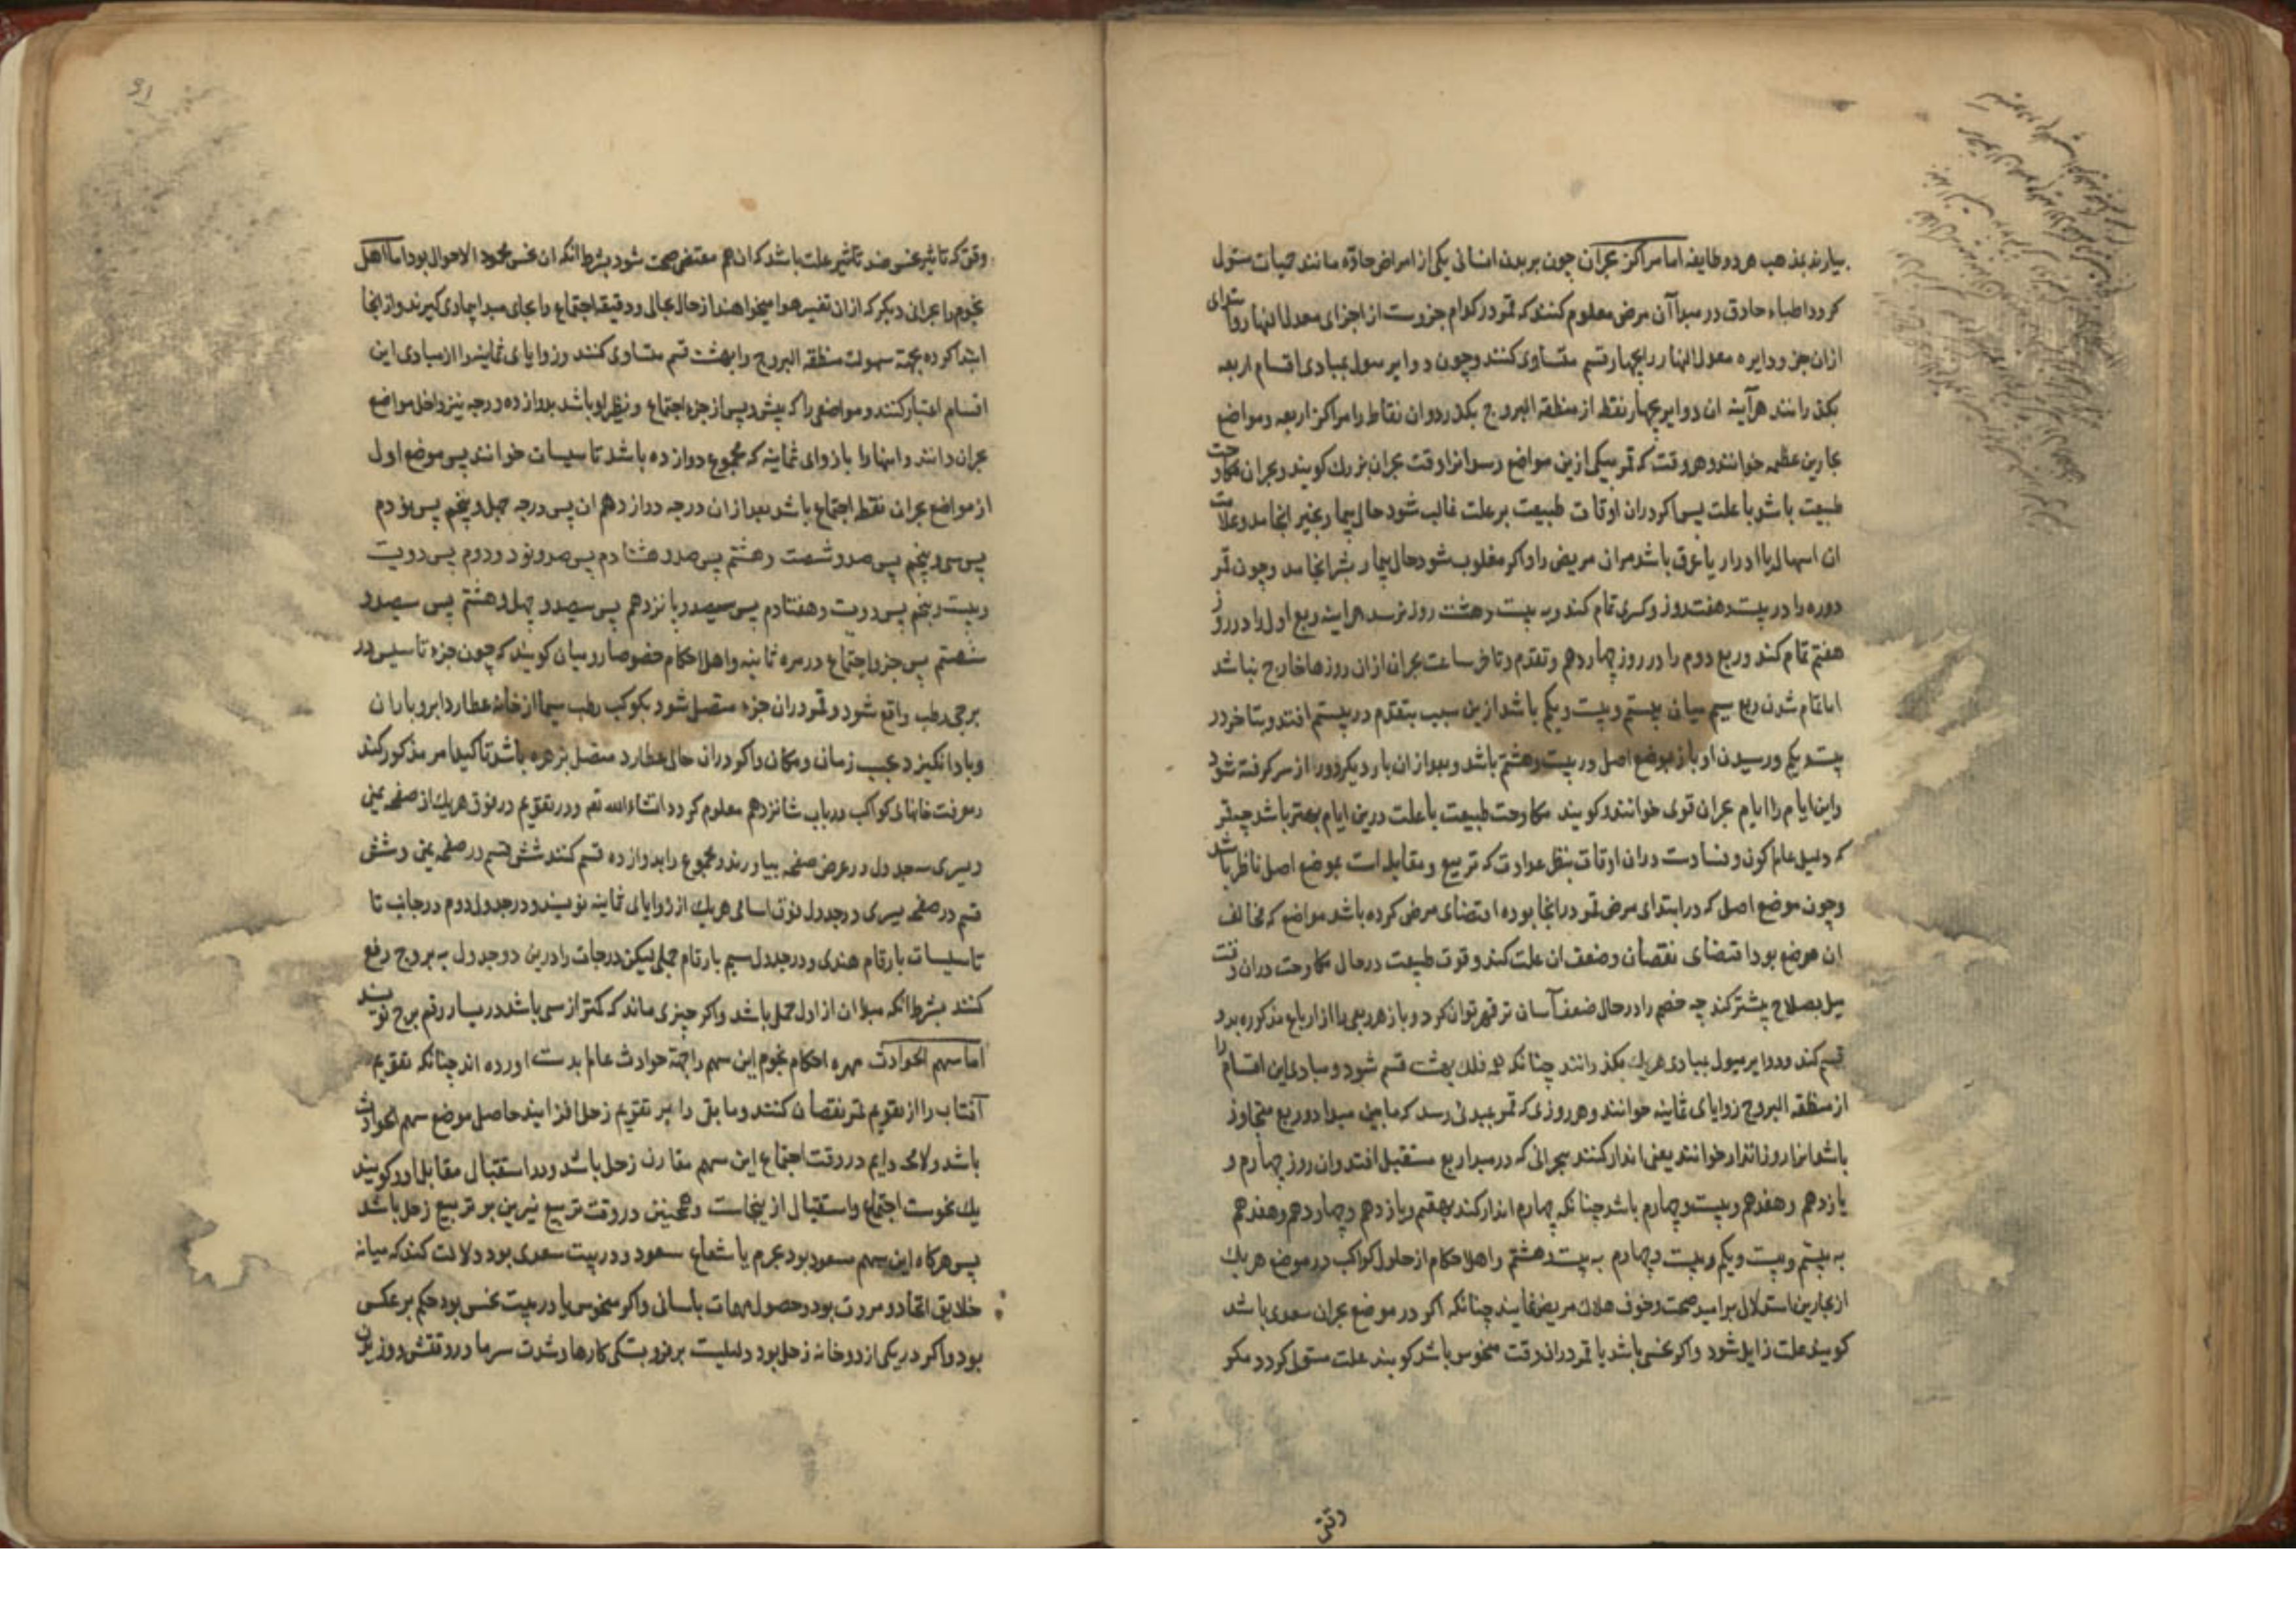 بیارند بمذهب هر دو طایفه اما مراکز بحران چون بر بدن انسانی یکی از امراض حادّه مانند حمیات مستولی
کردد اطباء حاذق در مبدأ آن مرض معلوم کنند که قمر در کدام جزوست از اجزای معدل النهار و ابتدای
ازان جزو دایره معدل النهار را بچهار قسم متساوی کنند و چون دوایر میول بمبادی اقسام اربعه
بکذرانند هرآینه ان دوایر بچهار نقطه از منطقه البروج بکذرد و ان نقاط را مراکز اربعه و مواضع
بحارین عظیمه خوانند و هر وقت که قمر بیکی ازین مواضع رسد انرا وقت بحران بزرك کویند و بحران مکاوحت
طبیعت باشد با علت پس اکر دران اوقات طبیعت بر علت غالب شود حال بیمار بخیر انجامد و علامت
ان اسهال یا ادرار یا عرق باشد مران مریض را و اکر مغلوب شود حال بیمار بشر انجامد و چون قمر
دوره را در بیست و هفت روز و کسری تمام کند و به بیست و هشت روز نرسد هراینه ربع اول را در روز
هفتم تمام کند و ربع دوم را در روز چهاردهم و تقدم و تاخر ساعت بحران ازان روزها خارج نباشد
اما تمام شدن ربع سیم میان بیستم و بیست و یکم باشد ازین سبب بتقدم در بیستم افتد و بتاخر در
بیست و یکم و رسیدن او باز بموضع اصل در بیست و هشتم باشد و بعد ازان بار دیکر دور از سر کرفته شود
و این ایام را ایام بحران قوی خوانند و کویند مکاوحت طبیعت با علت درین ایام بهتر باشد چه قمر
که دلیل عالم کون و فسادست دران اوقات بنظر عداوت که تربیع و مقابله است بموضع اصل ناظر باشد
و چون موضع اصل که در ابتدای مرض قمر درانجا بوده اقتضای مرض کرده باشد مواضع که مخالف
ان موضع بود اقتضای نقصان و ضعف ان علت کند و قوت طبیعت در حال مکاوحت دران وقت
میل بصلاح بیشتر کند چه خصم را در حال ضعف آسان تر قهر توان کرد و باز هر ربعی را از ارباع مذکوره بدو
قسم کند و دوایر میول بمبادی هر یك بکذرانند چنانکه فلك بهشت قسم شود و مبادی این اقسام را
از منطقه البروج زوایای ثمانیه خوانند و هر روزی که قمر بمبدئی رسد که مابین مبدا دو ربع متجاور
باشد انرا روز انذار خوانند یعنی انذار کنند ببحرانی که در مبدا ربع مستقبل افتد و ان روز چهارم و
یازدهم و هفدهم و بیست و چهارم باشد چنانکه چهارم انذار کند بهفتم و یازدهم بچهاردهم و هفدهم
به بیستم و بیست و یکم و بیست و چهارم به بیست و هشتم و اهل احکام از حلول کواکب در موضع هر یك
از بحارین استدلال بر امید صحت و خوف هلاك مریض نمایند چنانکه اکر در موضع بحران سعدی باشد
کویند علت زایل شود و اکر نحسی باشد یا قمر دران وقت منحوس باشد کویند علت مستولی کردد مکر
وقتی
وقتی که تاثیر نحس ضد تاثیر علت باشد که ان هم مقتضی صحت شود بشرط انکه ان نحس محمود الاحوال بود اما اهل
نجوم را بحرانی دیکر که ازان تغییر هوا میخواهند از حال بحالی و دقیقه اجتماع را بجای مبدا بیماری کیرند و ازانجا
ابتدا کرده بجهة سهولت منطقه البروج را بهشت قسم متساوی کنند و زوایای ثمانیه را از مبادی این
اقسام اعتبار کنند و مواضعی را که پیش و پس از جزء اجتماع و نظیر او باشد بدوازده درجه نیز داخل مواضع
بحران دانند و اینها را با زوایای ثمانیه که مجموع دوازده باشد تاسیسات خوانند پس موضع اول
از مواضع بحران نقطه اجتماع باشد بعد ازان درجه دوازدهم ان پس درجه چهل و پنجم پس نودم
پس سی و پنجم پس صد و شصت و هشتم پس صد و هشتادم پس صد و نود و دوم پس دویست
و بیست و پنجم پس دویست و هفتادم پس سیصد و پانزدهم پس سیصد و چهل و هشتم پس سیصد و
شصتم پس جزو اجتماع در مره ثانیه و اهل احکام خصوصا رومیان کویند که چون جزء تاسیس در
برجی رطب واقع شود و قمر دران جزء متصل شود بکوکب رطب سیما از خانه عطارد ابر و باران
و باد انکیزد بحسب زمان و مکان و اکر دران حال عطارد متصل بزهره باشد تاکید امر مذکور کند
و معرفت خانهای کواکب در باب شانزدهم معلوم کردد انشاء الله تع و در تقویم در فوق هر یك از صفحه یمنی
و یسری سه جدول در عرض صفحه بیاورند و مجموع را بدوازده قسم کنند شش قسم در صفحه یمنی و شش
قسم در صفحه یسری و در جدول فوق اسامی هر یك از زوایای ثمانیه نویسند و در جدول دوم درجات تا
تاسیسات بارقام هندی و در جدول سیم بارقام جملی لیکن درجات را درین دو جدول به بروج رفع
کنند بشرط انکه مبدا ان از اول حمل باشد و اکر چیزی ماند که کمتر از سی باشد در یسار رقم برج نویسند
اما سهم الحوادث مهره احکام نجوم این سهم را بجهة حوادث عالم بدست اورده اند چنانکه تقویم
آفتاب را از تقویم قمر نقصان کنند و مابقی را بر تقویم زحل افزایند حاصل موضع سهم الحوادث
باشد و لامحه دایم در وقت اجتماع این سهم مقارن زحل باشد و در استقبال مقابل او و کویند
یك نحوست اجتماع و استقبال از ینجاست و همچنین در وقت تربیع نیرین بر تربیع زحل باشد
پس هرکاه این سهم مسعود بود بجرم یا شعاع سعود و در بیت سعدی بود دلالت کند که میانه
خلایق اتحاد و مروت بود و حصول مهمات باسانی و اکر منحوس یا در بیت نحس بود حکم بر عکس
بود و اکر در یکی از دو خانه زحل بود دلیلیست بر فروبستکی کارها و شدت سرما در وقتش و وزیدن